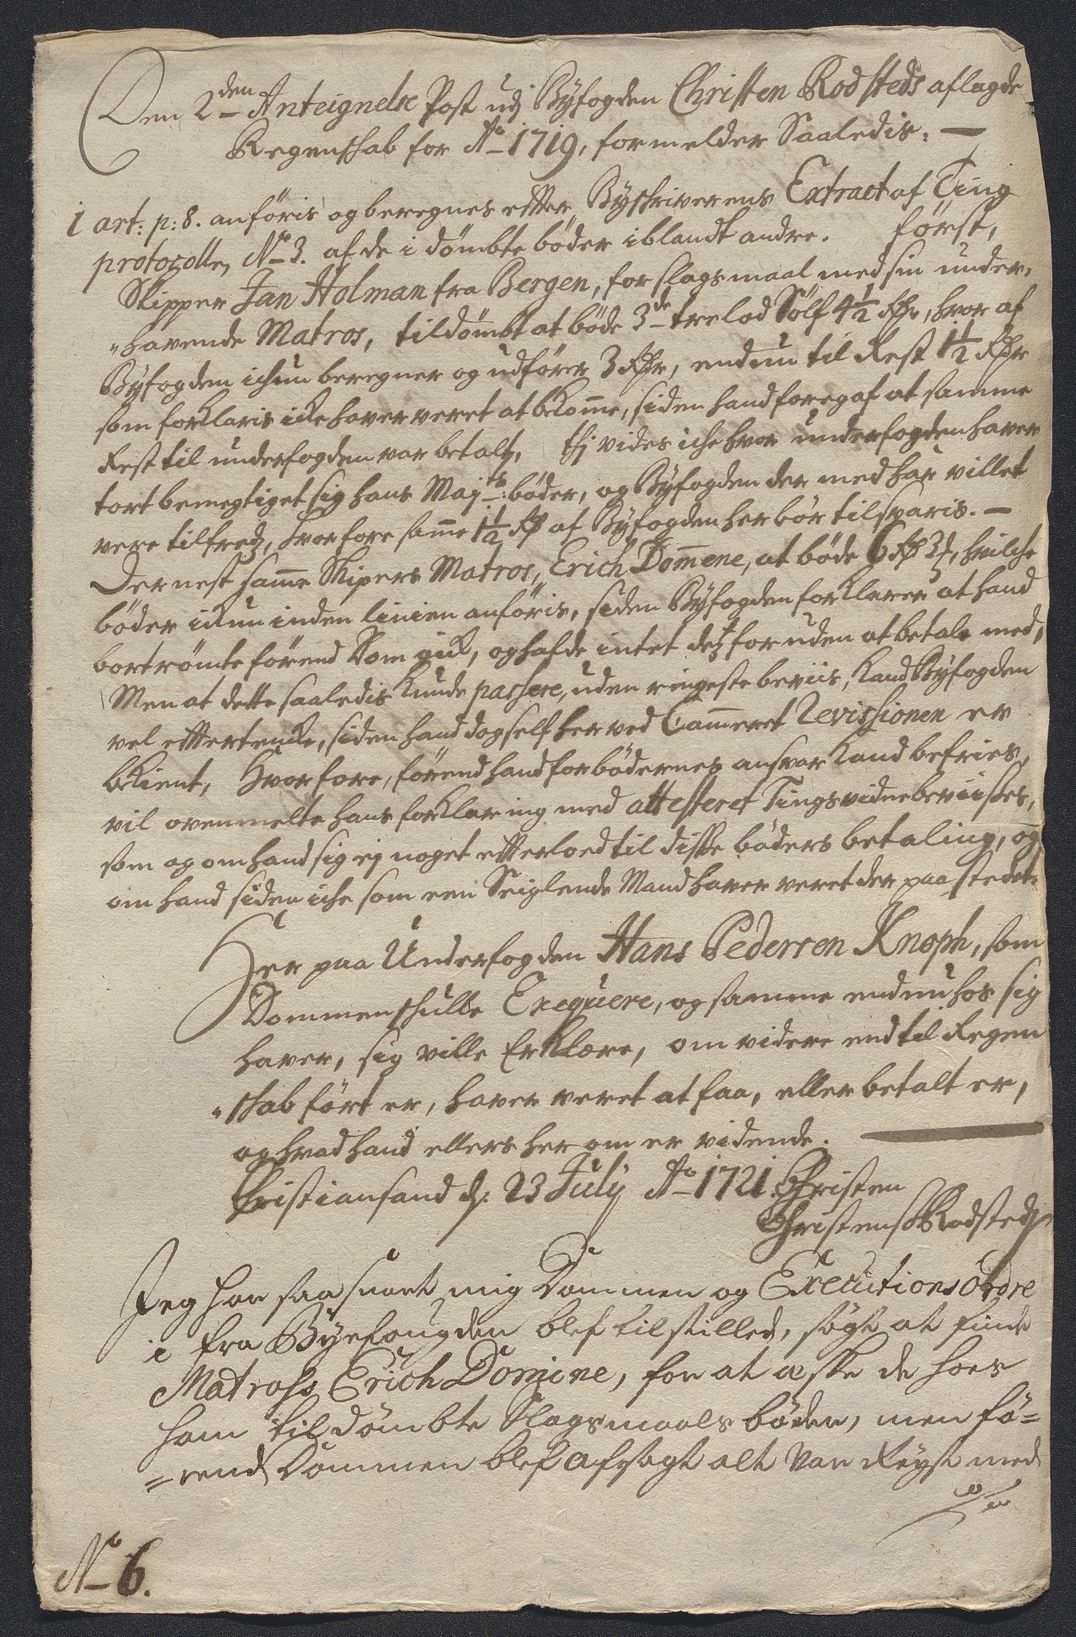 Den 2den Anteignelse Post udj Byfogden Christen Rodsteds aflagde
Regenskab for Ao 1719, formelder Saaledis:
1 art: p: 8. anföris og beregnes efter Byskriverens Extract af Ting
protocollen No 3. af de i dömbte böder iblandt andre. först,
Skipper Jan Holman fra Bergen, for slagsmaal med sin under-
havende Matros, tildömbt at böde 3de trelod Sölf 4½ Rdr, hvor af
Byfogden ickun beregner og udförer 3 Rdr, endnu til Rest 1½ Rdr
som forklaris icke haver veret at bekomme, siden hand foregaf at samme
Rest til underfogden var betalt, thj vides icke hvor underfogden haver
tort bemegtiget sig hans Mayts: böder, og Byfogden der med har villet
vere tilfreds, hvorfore samme 1½ Rdr af Byfogden her bör tilsvaris.
Dernest samme Skipers Matros, Erich Domene, at böde 6 Rdr 3, hvilche
böder ickun inden linien anföris, siden Byfogden forklarer at hand
bortrömte förend Dom gick, og hafde intet des foruden at betale med,
Men at dette saaledis kunde passere, uden ringeste beviis, kand Byfogden
vel eftertencke, siden hand dog self her ved Cammeret Revissionen er
bekient, Hvorfore, förend hand for bödernes ansvar kand befries,
vil ovenmelte hans forklaring med attesteret Tingsvidne bevisses,
som og om hand sig ej noget efterloed til disse böders betaling, og
om hand siden icke som een Seiglende Mand haver veret der paa stedet.
Her paa Underfogden Hans Pedersen Knoph, som
Dommen skulle Exequere, og samme endnu hos sig
haver, sig ville Erklære, om videre end til Regen
skab fört er, haver veret at faa, eller betalt er,
og hvad hand ellers her om er vidende.
Christiansand d. 23 July Ao 1721. Christen
Christensen Rodsted
Jeg har saa snart mig Dommen og Executions Ordre
i fra Byefougden blef tilstilled, søgt at finde
Matrohs Erich Domine, for at æske de hoes
ham tildömbte Slagsmaals böder, men fö=
=rend Dommen blef afsagt alt var Reyst med
No 6.